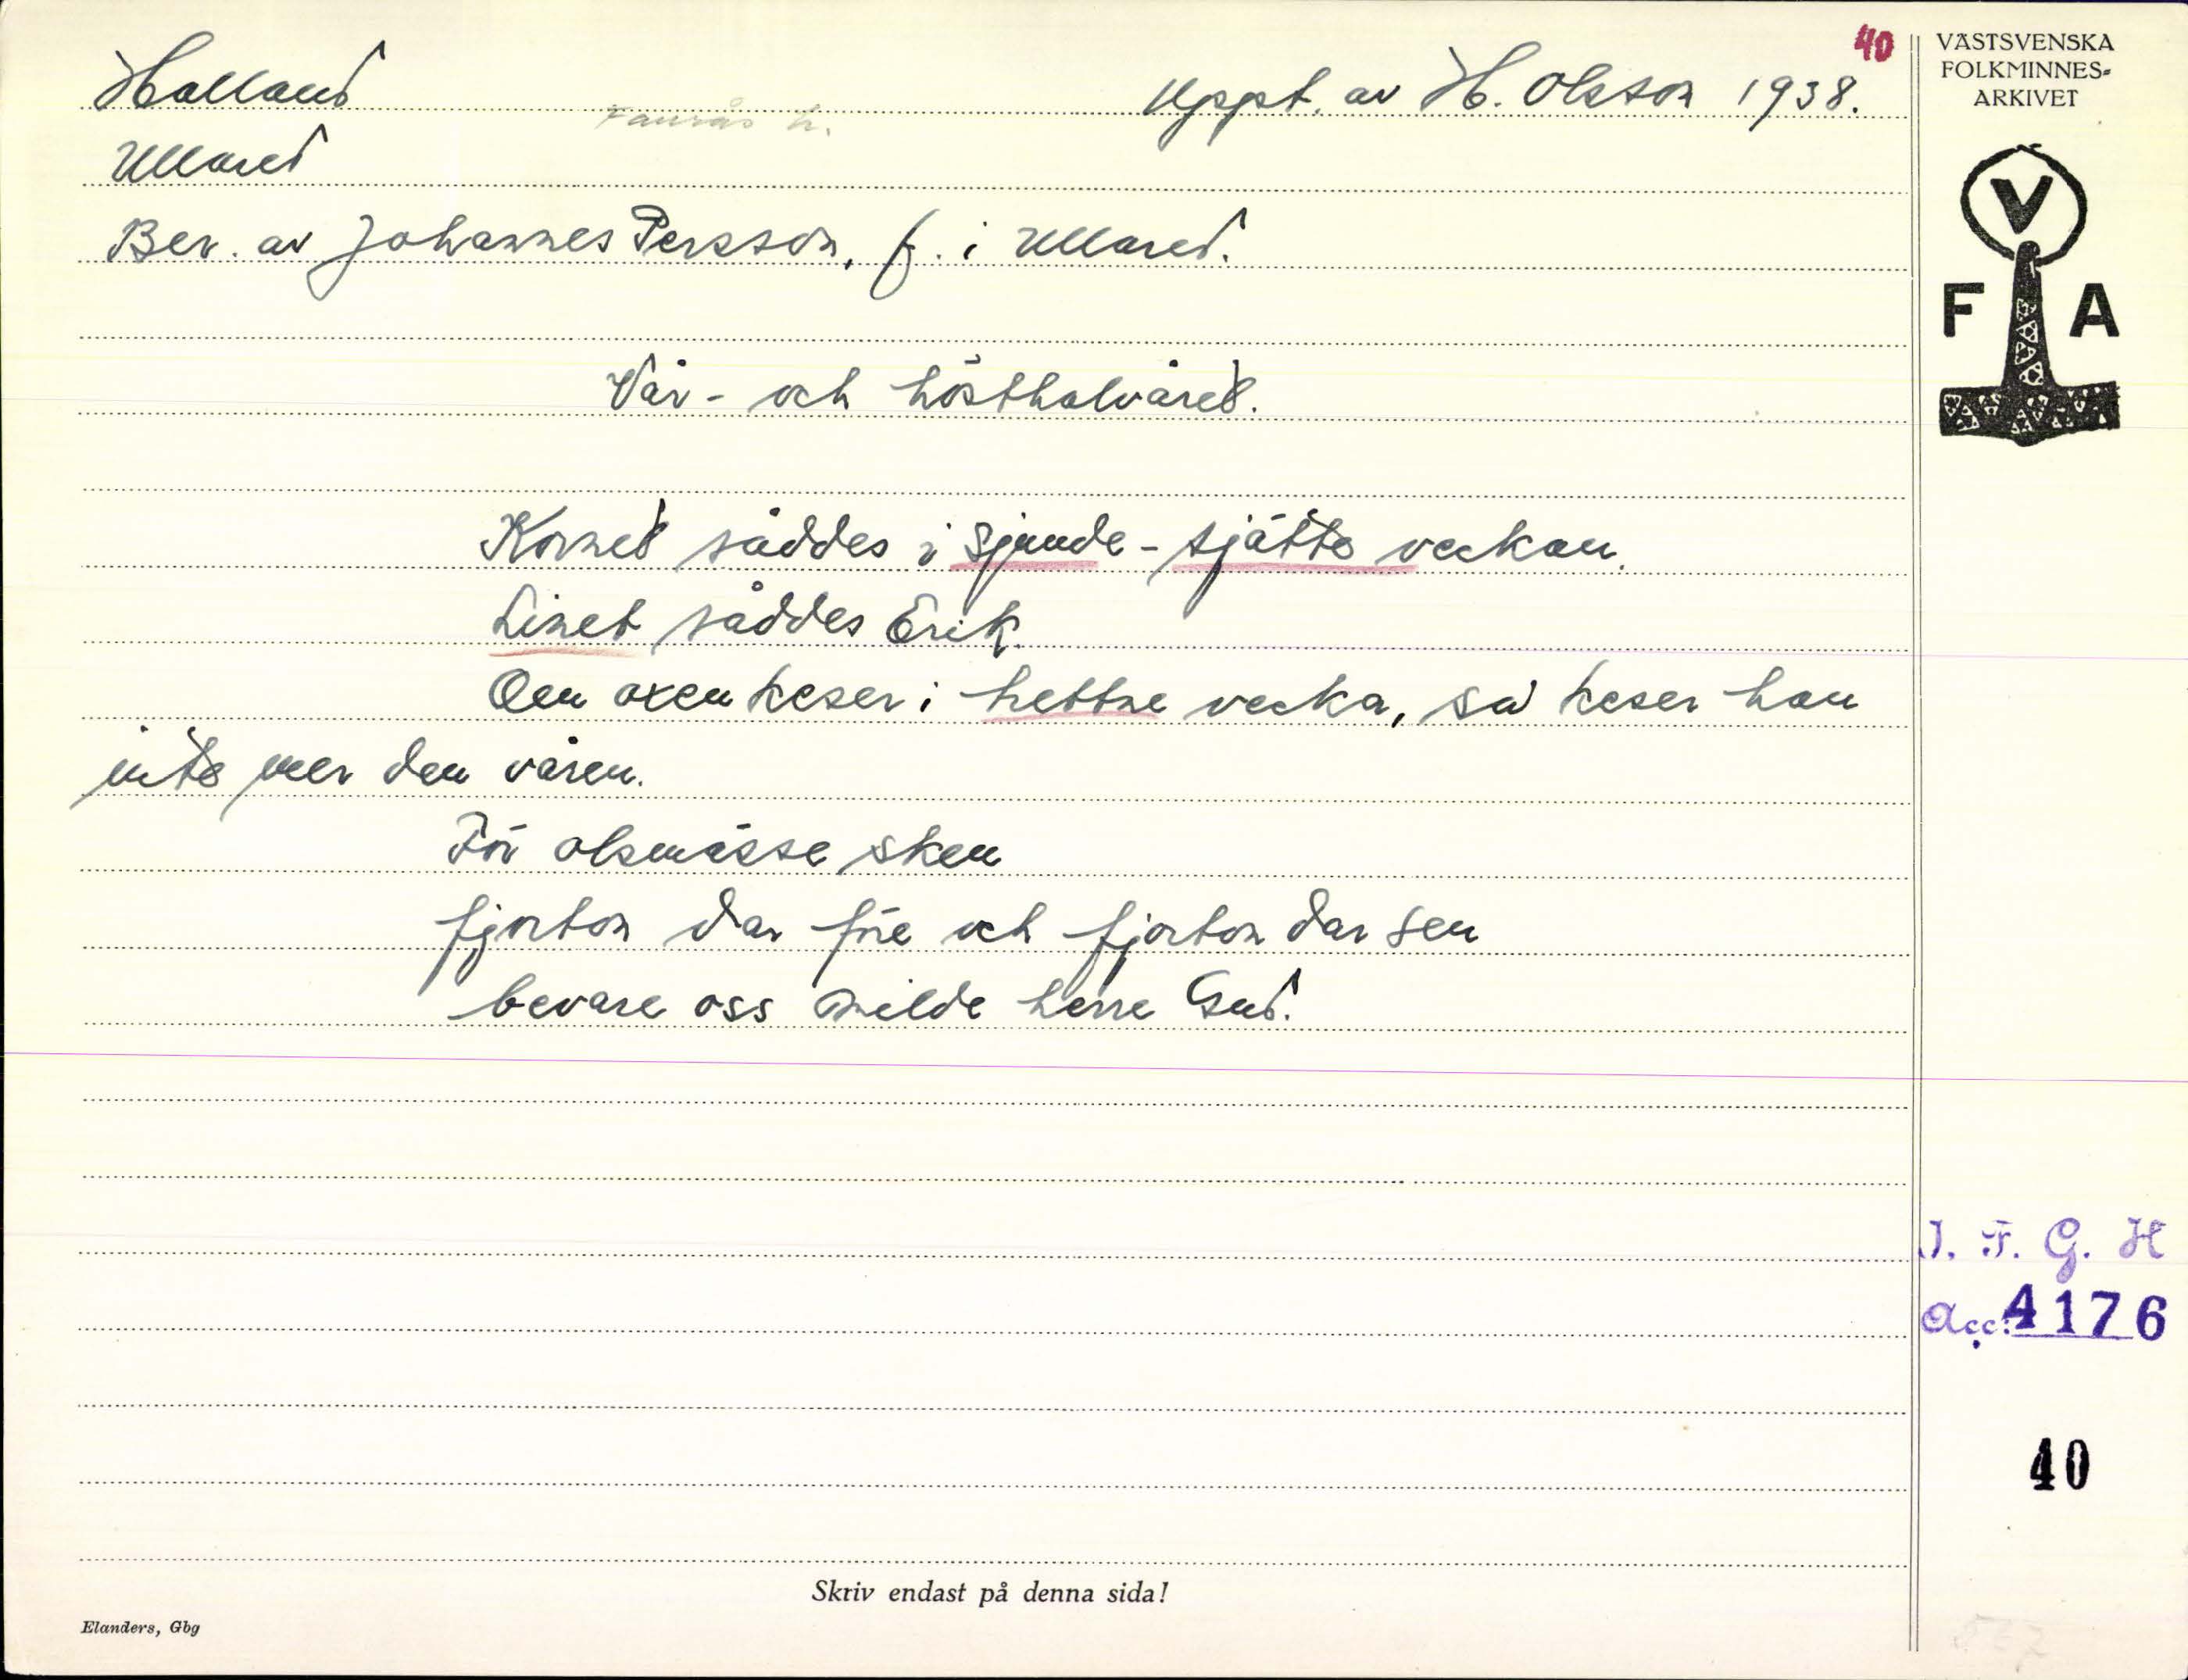 40
VÄSTSVENSKA
FOLKMINNES-
ARKIVET
Halland Faurås h. Uppt. av H. Olsson 1938.
Ullared
Ber. av Johannes Persson, f. i Ullared.
V
F A
Vår- och hösthalvåret.
Kornet såddes i sjunde-sjätte veckan.
Linet såddes Erik.
Om oxen keser i hettne vecka, så keser han
inte mer den våren.
För olsmässe sken
fjorton dar före och fjorton dar sen
bevare oss milde herre Gud.
I. F. G. H
Acc: 4176
40
Skriv endast på denna sida!
Elanders, Gbg